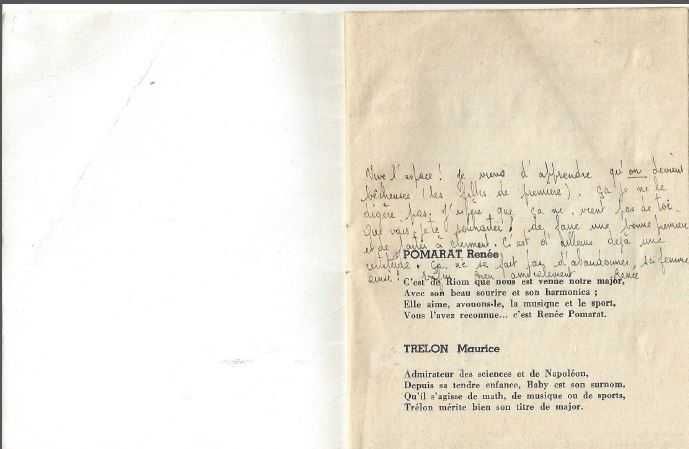 Vive l'espace ! Je viens d'apprendre qu'on devient
bêcheuses (les filles de première). Ça je ne le
digère pas. J'espère que ça ne vient pas de toi.
Que vais je te souhaiter ? de faire une bonne première
et de à Clermont. C'est d'ailleurs déjà une
certitude. Ça ne se fait pas d'abandonner sa femme
ainsi ! bien amicalement Renée
POMARAT Renée
C'est de Riom que nous est venue notre major,
Avec son beau sourire et son harmonica ;
Elle aime, avouons-le, la musique et le sport,
Vous l'avez reconnue... c'est Renée Pomarat.
TRELON Maurice
Admirateur des sciences et de Napoléon,
Depuis sa tendre enfance, Baby est son surnom.
Qu'il s'agisse de math, de musique ou de sports,
Trélon mérite bien son titre de major.